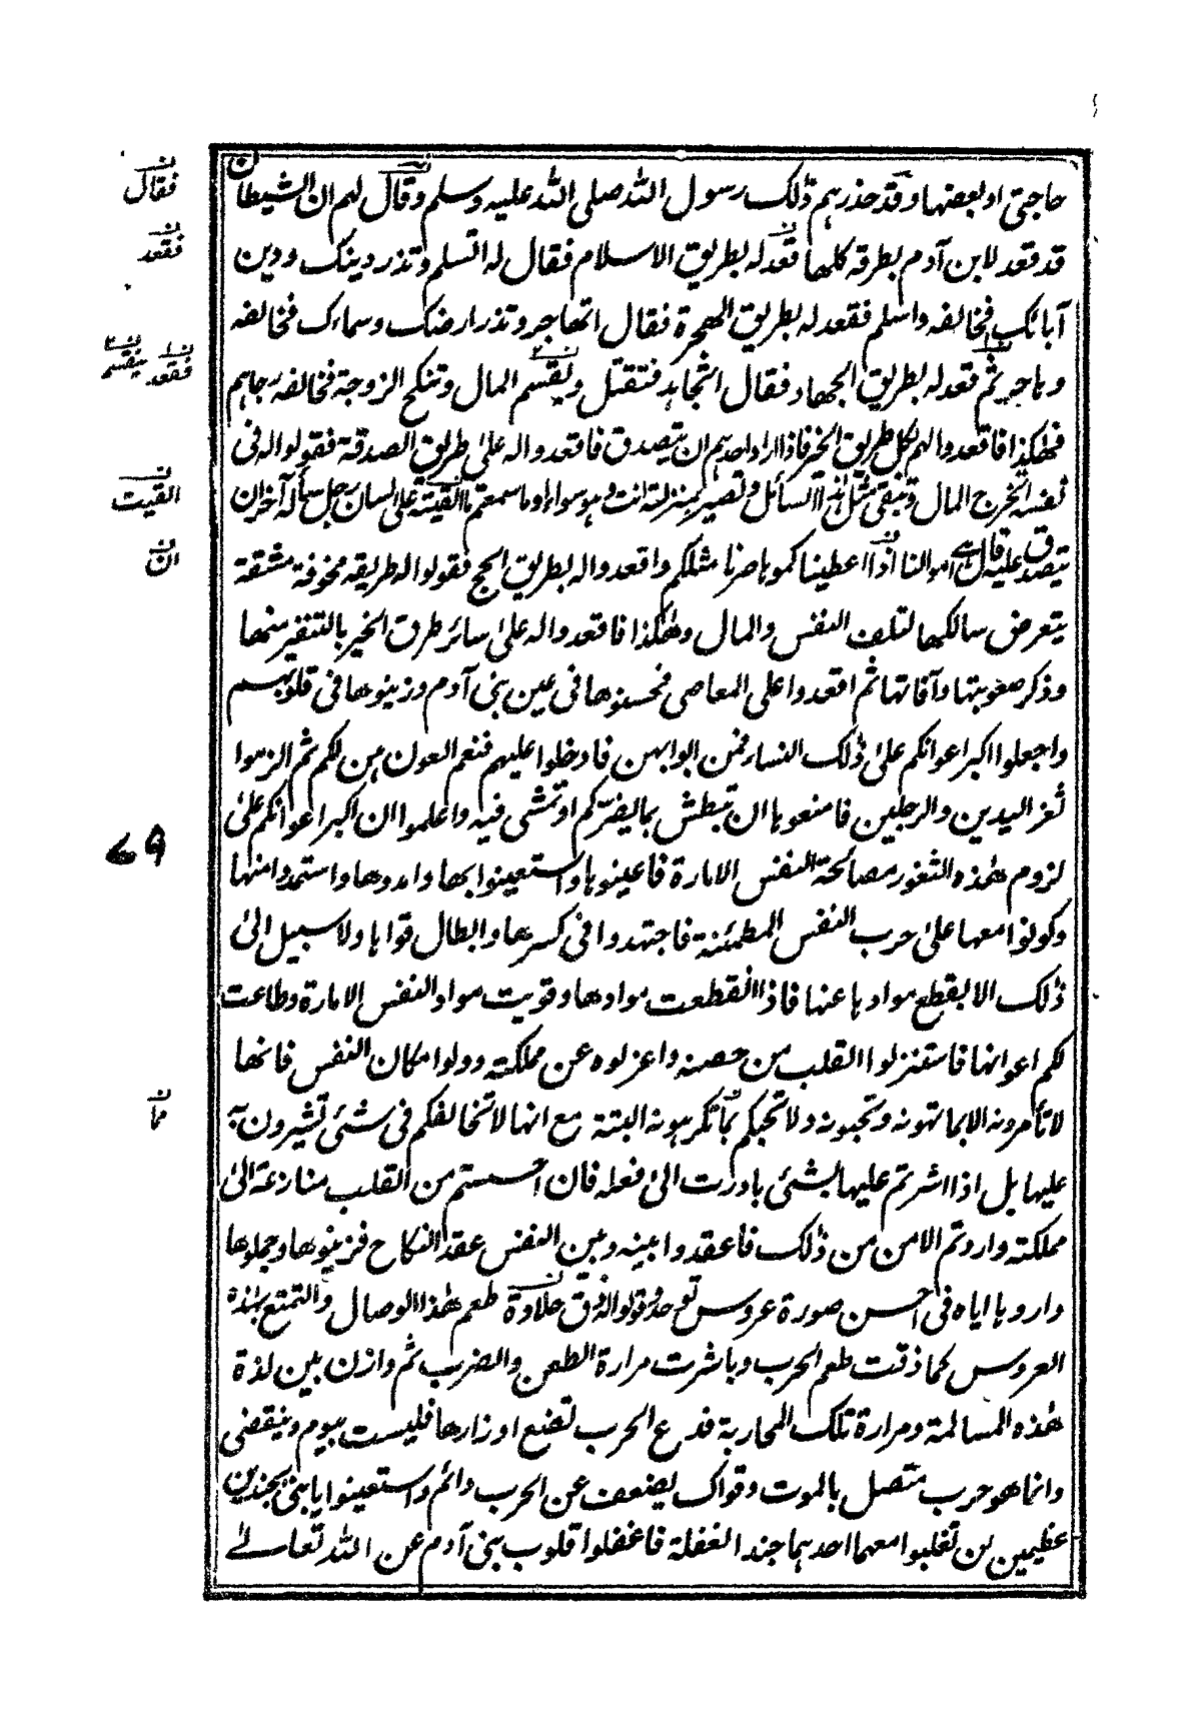 حاجتي او بعضها وقد حذرهم ذلك رسول الله صلى الله عليه وسلم وقال لهم ان الشيطان
قد قعد لابن آدم بطرقه كلها قعد له بطريق الاسلام فقال له اتسلم وتذر دينك ودين
آبائك فخالفه واسلم فقعد له بطريق الهجرة فقال اتهاجر وتذر ارضك وسماءك فخالفه
وهاجر ثم قعد له بطريق الجهاد فقال اتجاهد فتقتل ويقسم المال وتنكح الزوجة فخالفه جاهم
فهكذا فاقعدوا لهم كل طريق الخير فاذا اراد احدهم ان يتصدق فاقعدوا له على طريق الصدقة فقولوا له في
نفسه اتخرج المال وتبقى مثل هذا السائل وتصير بمنزلته انت وهو سواء او ما سمعتم ما القيته على لسان رجل سأله آخر ان
يتصدق عليه قال هي اموالنا اذا اعطيناكموها صرنا مثلكم واقعدوا له بطريق الحج فقولوا له طريقه مخوفة مشقة
يتعرض سالكها لتلف النفس والمال وهكذا فاقعدوا له على سائر طرق الخير بالتنفير منها
وذكر صعوبتها وآفاتها ثم اقعدوا على المعاصي فحسنوها في عين بني آدم وزينوها في قلوبهم
واجعلوا اكبر اعوانكم على ذلك النساء فمن ابوابهن فادخلوا عليهم فنعم العون هن لكم ثم الزموا
ثغر اليدين والرجلين فامنعوها ان تبطش بما يضركم او تمشي فيه واعلموا ان اكبر اعوانكم على
لزوم هذه الثغور مصالحة النفس الامارة فاعينوها واستعينوا بها وامدوها واستمدوا منها
وكونوا معها على حرب النفس المطمئنة فاجتهدوا في كسرها وابطال قواها ولا سبيل الى
ذلك الا بقطع موادها عنها فاذا انقطعت موادها وقويت مواد النفس الامارة وطاعت
لكم اعوانها فاستنزلوا القلب من حصنه واعزلوه عن مملكته وولوا مكان النفس فانها
لا تأمر ونه الا بما تهونه وتحبونه ولا تجبكم بما تكرهونه البتة مع انها لا تخالفكم في شئ تشيرون به
عليها بل اذا اشرتم عليها بشئ بادرت الى فعله فان احسستم من القلب منازعة الى
مملكته واردتم الامن من ذلك فاعقدوا بينه وبين النفس عقد النكاح فزينوها وجملوها
واروها اياه في احسن صورة عروس توجد وقولوا له ذق حلاوة طعم هذا الوصال والتمتع بهذه
العروس كما ذقت طعم الحرب وباشرت مرارة الطعن والضرب ثم وازن بين لذة
هذه المسالمة ومرارة تلك المحاربة فدع الحرب تضع اوزارها فليست بيوم وينقضي
وانما هو حرب متصل بالموت وقواك يضعف عن الحرب دائم واستعينوا يا بني بجندين
عظيمين لن تغلبوا معهما احدهما جند الغفلة فاغفلوا قلوب بني آدم عن الله تعالى
فقال
فقعد
فقعد
ينقسم
القيت
ان
٧٩
مما